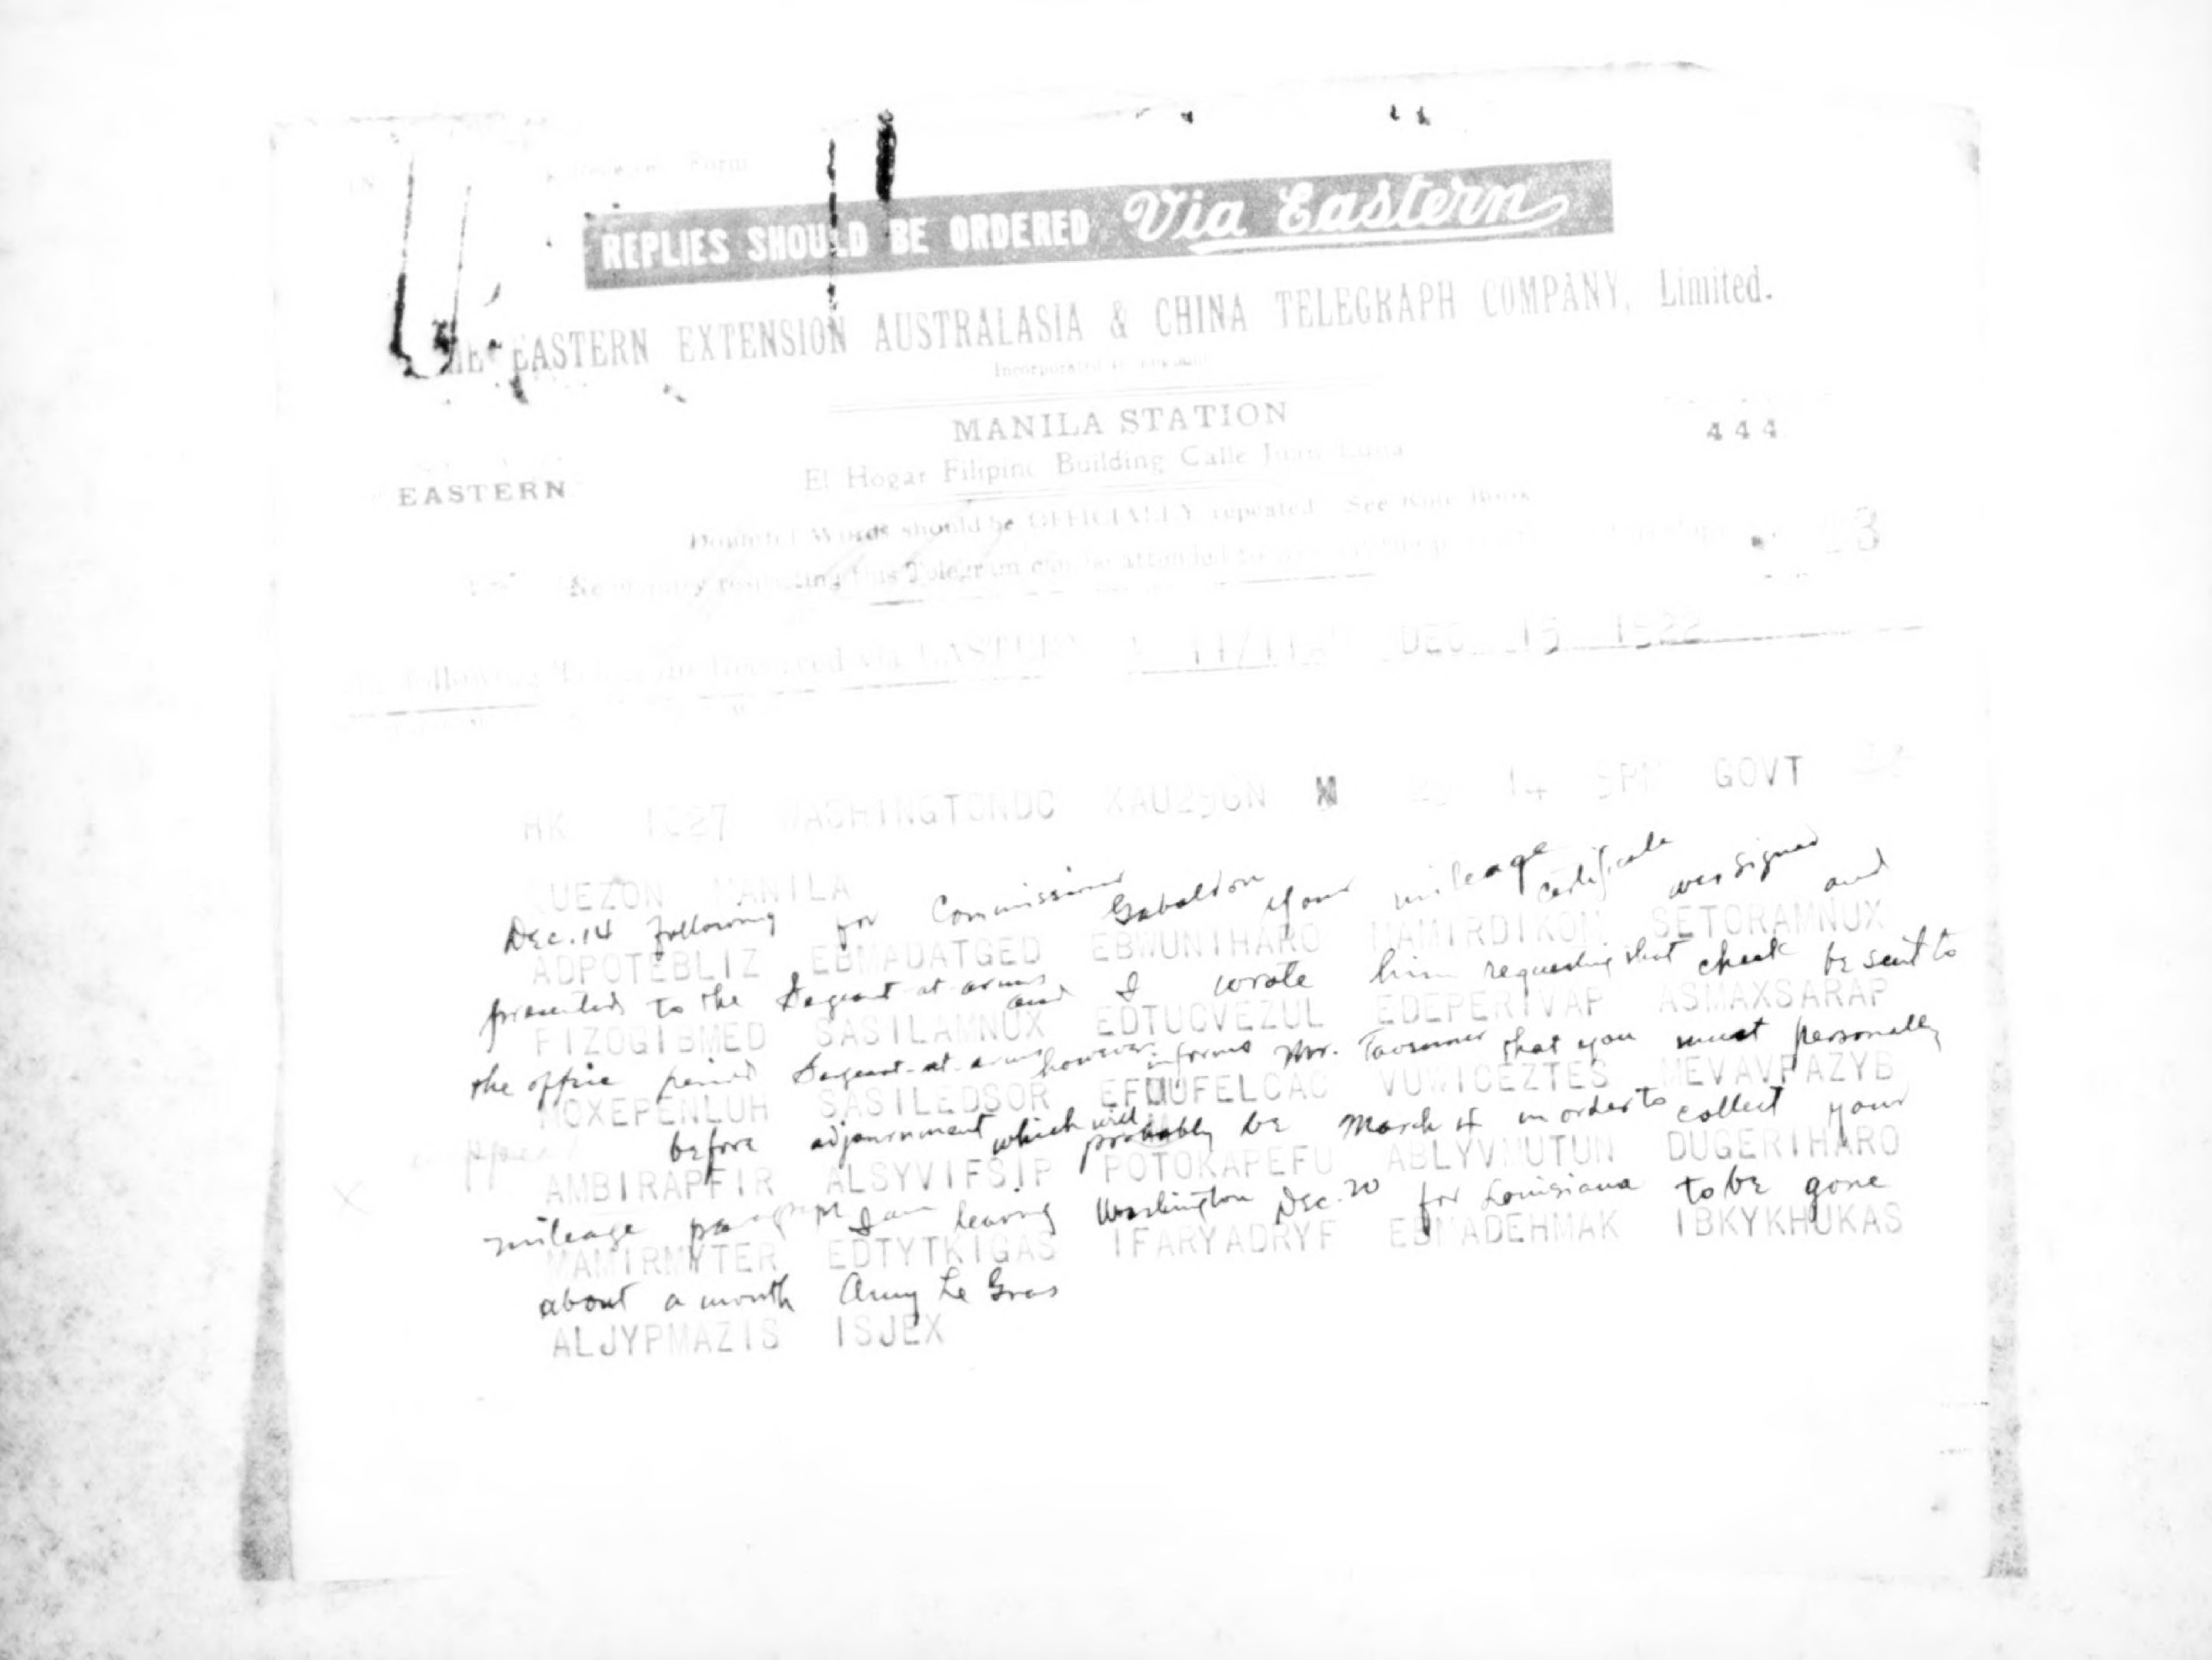 Form
REPLIES SHOULD BE ORDERED Via Eastern
EASTERN EXTENSION AUSTRALASIA & CHINA TELEGRAPH COMPANY, Limited.
Incorporated
MANILA STATION
444
El Hogar Filipino Building Calle Juan Luna
EASTERN
Doubtful Words should be OFFICIALLY repeated. See Rule Book
respecting this Telegram can be attended to
following Received via EASTERN DEC 15 1922
HK WASHINGTONDC 14 5PM GOVT
QUEZON MANILA
Dec. 14 following for Commissioner Gabaldon your mileage certificate was signed and
ADPOTEBLIZ EBMADATGED EBWUNIHARO MAMIRDIKOM SETORAMNUX
presented to the Sergeant-at-arms and I wrote him requesting that check be sent to
FIZOGIBMED SASILAMNUX EDTUCVEZUL EDEPERIVAP ASMAXSARAP
the office period Sergeant-at-arms however informs Mr. that you must personally
MOXEPENLUH SASILEDSOR VUWICEZTES MEVAVPAZYB
appear before adjournment which will probably be March 4 in order to collect your
AMBIRAPFIR ALSYVIFSIP POTOKAPEFU ABLYVNUTUN DUGERIHARO
mileage paragraph I am leaving Washington Dec. 20 for Louisiana to be gone
MAMIRMYTER EDTYTKIGAS IFARYADRYF EBMADEHMAK IBKYKHUKAS
about a month Army Le Gras
ALJYPMAZIS ISJEX